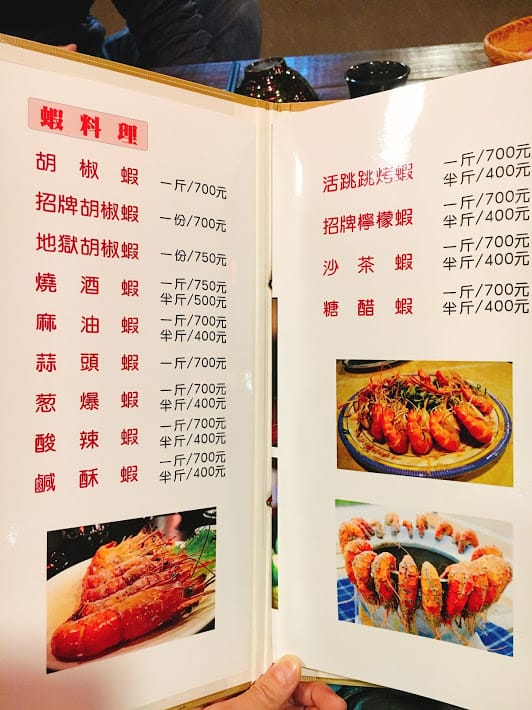 蝦料理
胡椒蝦 一斤/700元
招牌胡椒蝦 一份/700元
地獄胡椒蝦 一份/750元
燒酒蝦 一斤/750元
半斤/500元
麻油蝦 一斤/700元
半斤/400元
蒜頭蝦 一斤/700元
葱爆蝦 一斤/700元
半斤/400元
酸辣蝦 一斤/700元
半斤/400元
鹹酥蝦 一斤/700元
半斤/400元
活跳跳烤蝦 一斤/700元
半斤/400元
招牌檸檬蝦 一斤/700元
半斤/400元
沙茶蝦 一斤/700元
半斤/400元
糖醋蝦 一斤/700元
半斤/400元